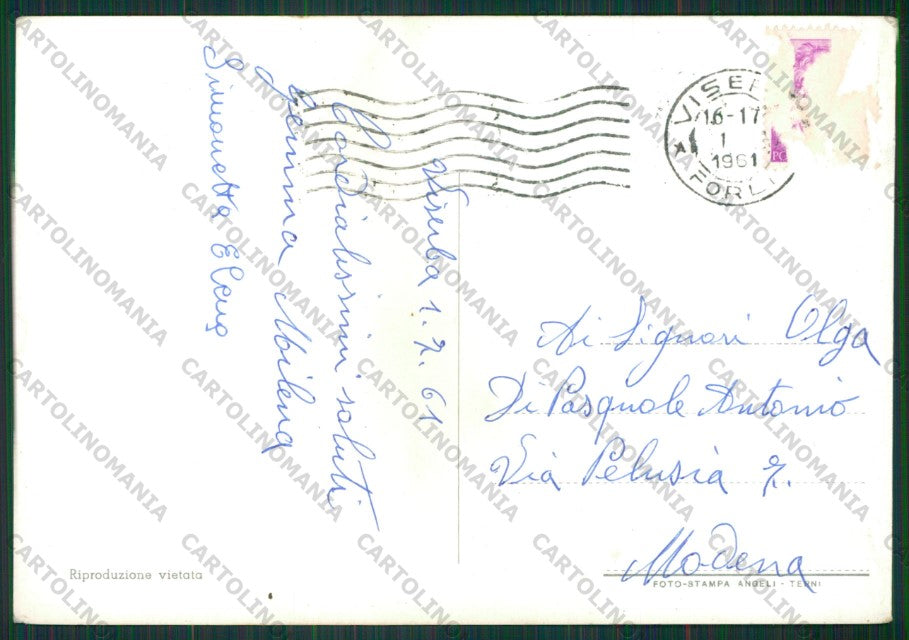 Viserba 1.7.61
Cordialissimi saluti
Gemma Milena
Simonetta
VISER
16-17
1
1961
FORLI
Ai Signori Olga
Di Pasquale Antonio
Via Pelusia 7.
Modena
Riproduzione vietata
FOTO-STAMPA ANGELI - TERNI
CARTOLINOMANIA